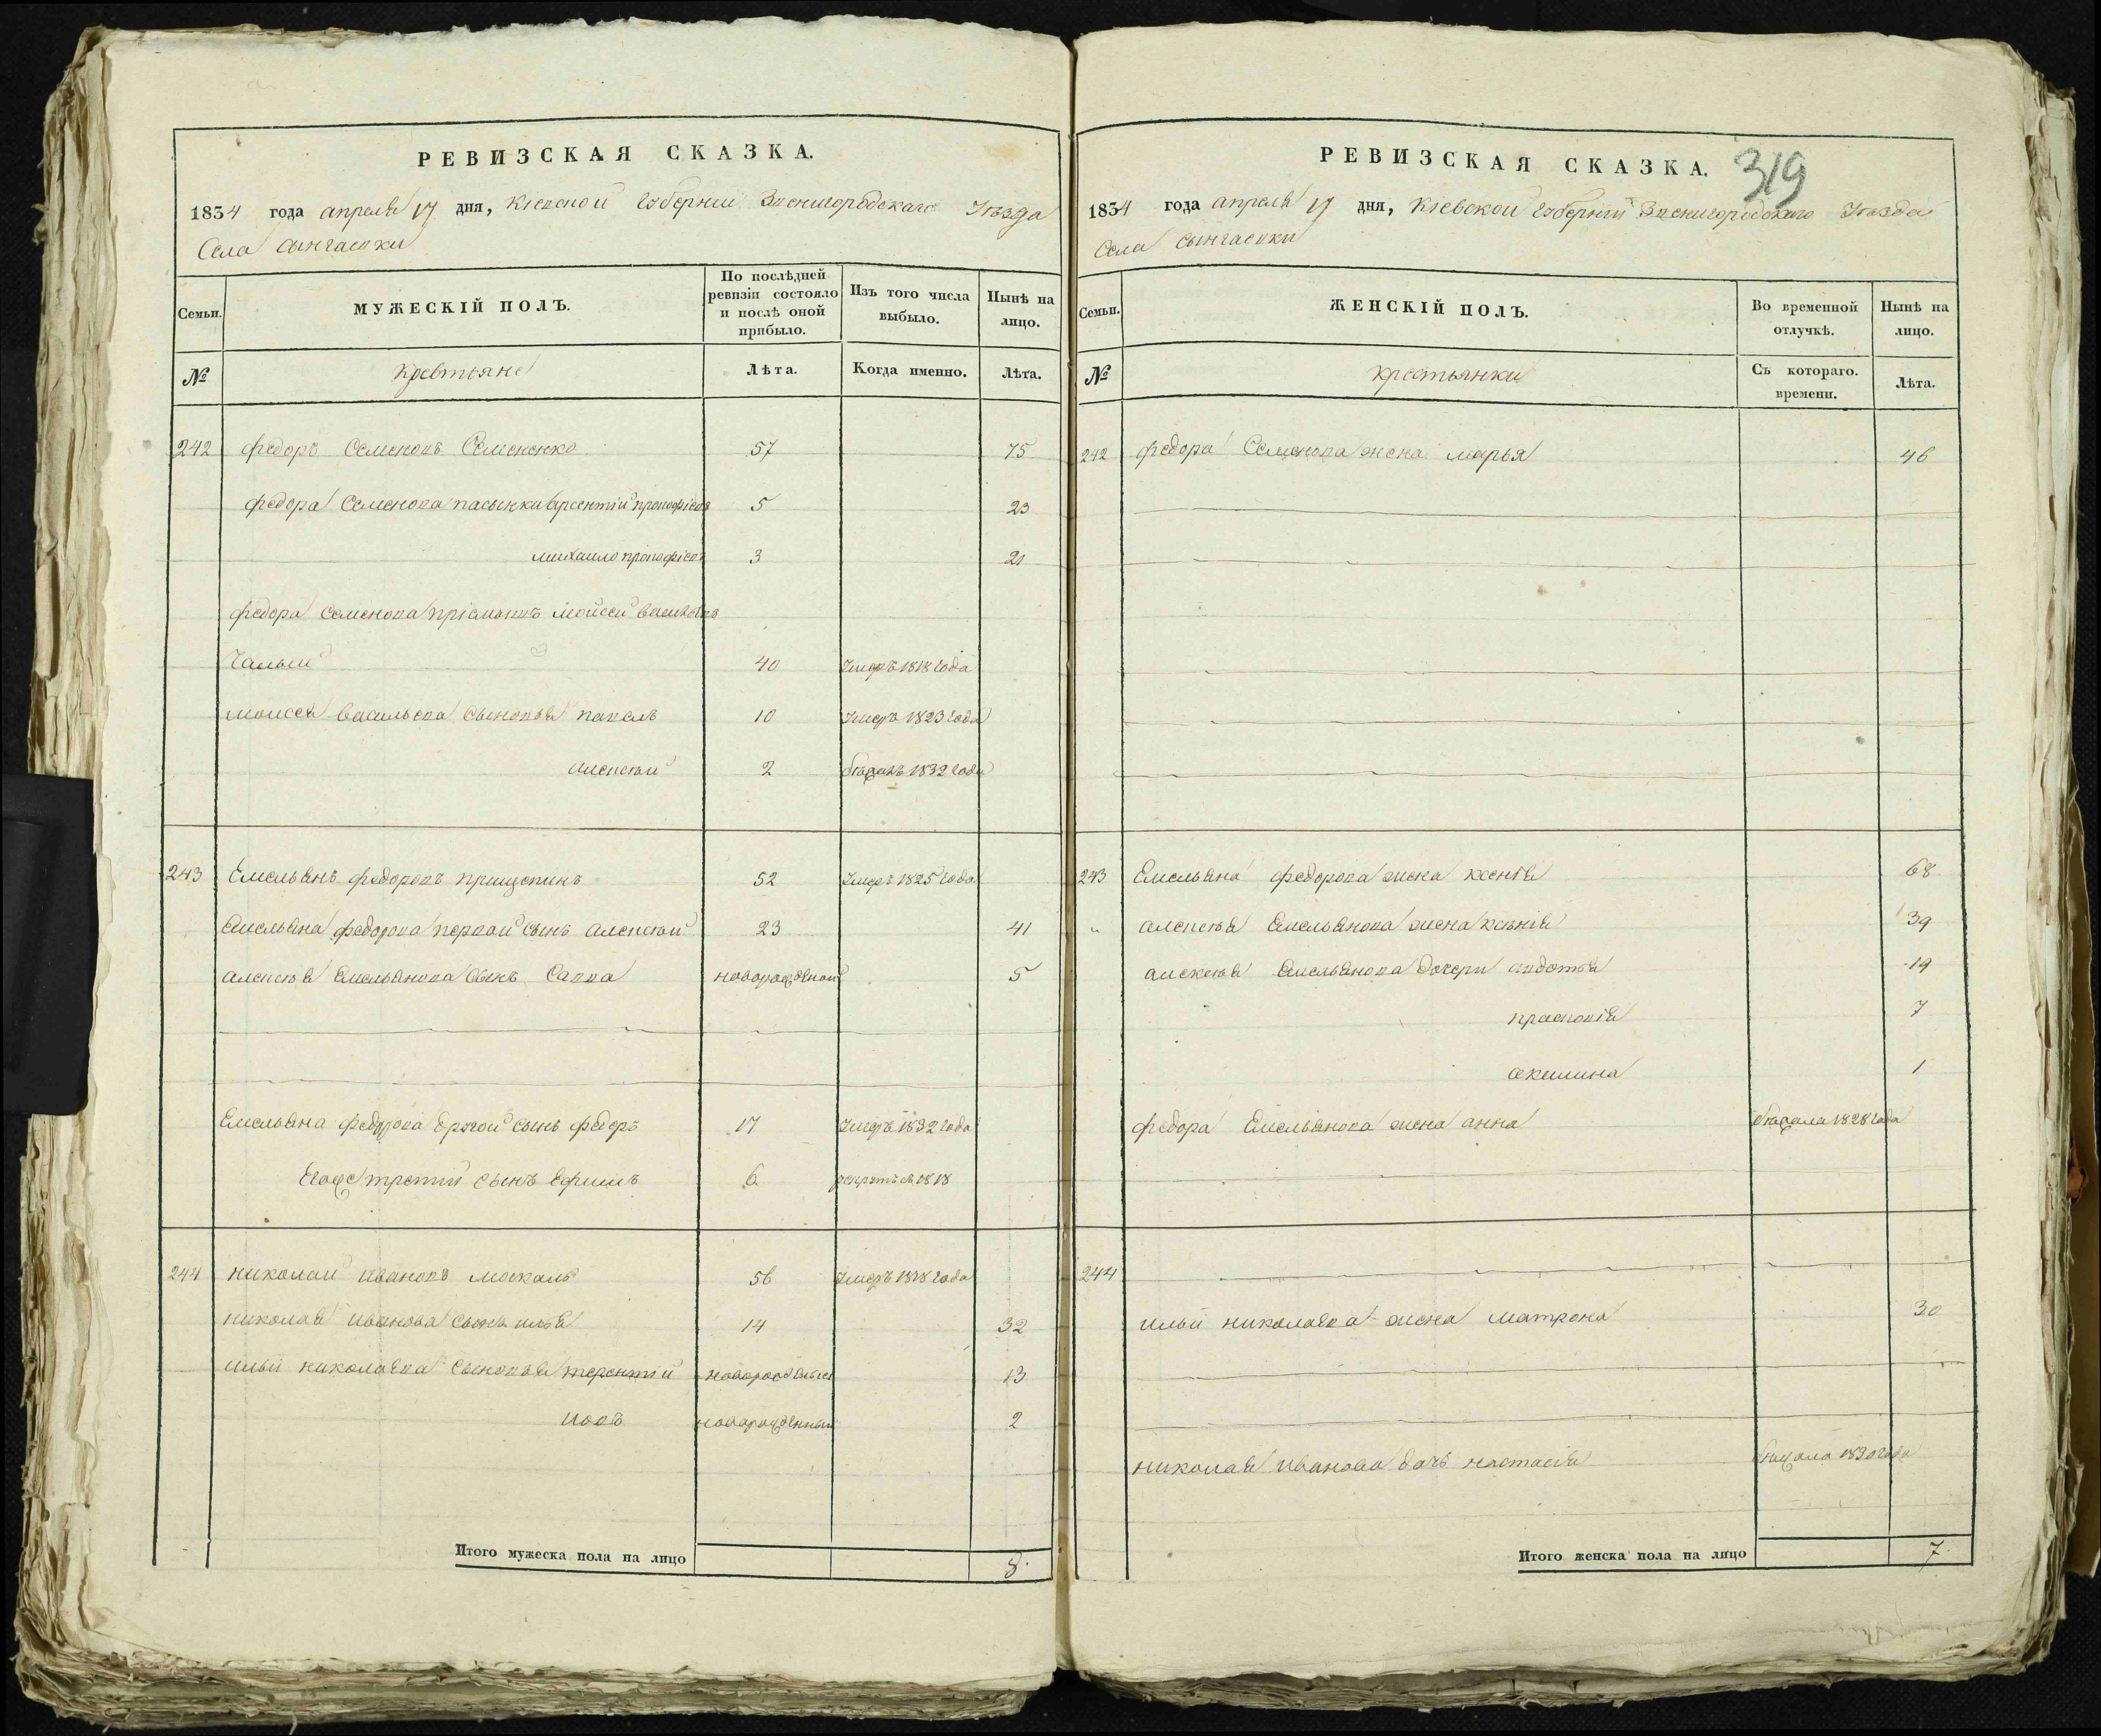 РЕВИЗСКАЯ СКАЗКА.
1834 года апреля 17 дня, Кіевской Губерніи Звенигородскаго Уѣзда
Села
По послѣдней ревизіи состояло и послѣ оной прибыло.
Изъ того числа выбыло.
Нынѣ на лицо.
Семьи.
МУЖЕСКІЙ ПОЛЪ.
№
Крестьяне
Лѣта.
Когда именно.
Лѣта.
242 Федоръ Семеновъ Семененко 57 75
Федора Семенова пасынки Арсентій прокофіевъ 5 23
михаило прокофіевъ 3 21
Федора Семенова пріемышъ Мойсей Васильевъ
Чалый 40 Умеръ 1818 года
моисея Васильева Сыновья павелъ 10 Умеръ 1823 года
алексѣй 2 бѣжалъ 1832 года
243 Емельянъ федоровъ 52 Умеръ 1825 года
Емельяна федорова первый Сынъ алексѣй 23 41
алексѣя Емельянова Сынъ Савва новорожденый 5
Емельяна федорова другой Сынъ федоръ 17 Умеръ 1832 года
Егоже третій Сынъ Ефимъ 6 1818
244 николай ивановъ москаль 56 Умеръ 1818 года
николая Иванова Сынъ илья 14 32
ильи николаева Сыновья терентій 13
иовъ новорожденный 2
Итого мужеска пола на лицо 8.
РЕВИЗСКАЯ СКАЗКА. 319
1834 года апреля 17 дня, Кіевской Губерніи Звенигородскаго Уѣзда
Села
Семьи.
ЖЕНСКІЙ ПОЛЪ.
Во временной отлучкѣ.
Нынѣ на лицо.
№
Крестьянки
Съ котораго. времени.
Лѣта.
242 Федора Семенова жена марья 46
243 Емельяна федорова жена ксенія 68
„ алексѣя Емельянова жена ксѣнія 39
алексѣя Емельянова дочери авдотья 19
прасковія 7
акилина 1
федора Емельянова жена анна бѣжала 1828 года
244
ильи николаева жена матрона 30
николая Иванова дочь настасія бѣжала 1830 года
Итого женска пола на лицо 7.